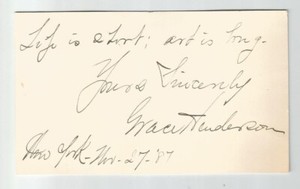 Life is short; art is long.
Yours Sincerely
Grace Henderson
New York - Nov - 27 - '97